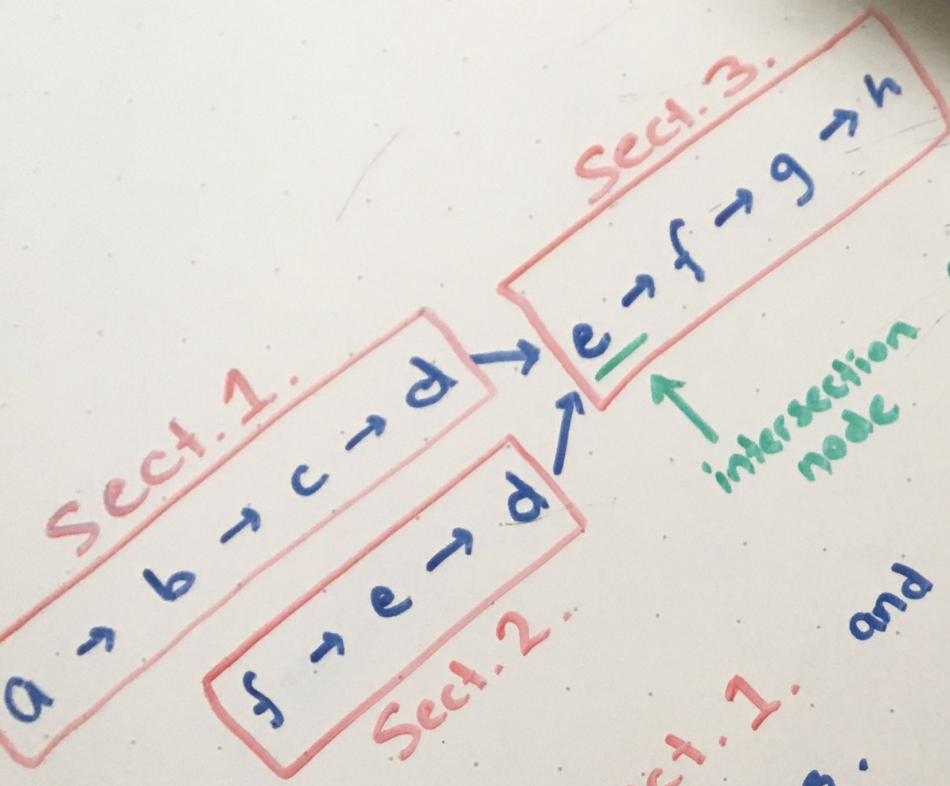 Sect. 1.
a → b → c → d →
Sect. 2.
f → e → d →
Sect. 3.
e → f → g → h
intersection
node
and
ct. 1.